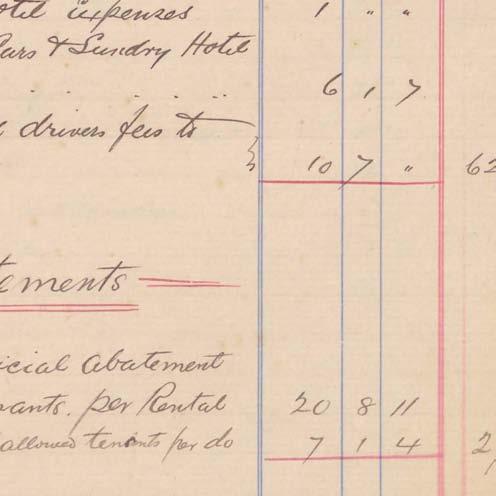 otel expenses 1 " "
Cars & Sundry Hotel
. . . .. 6 1 7
drivers fees to
10 7 " 62
ements
icial Abatement
ants. per Rental 20 8 11
allowed tenants per do 7 1 4 2